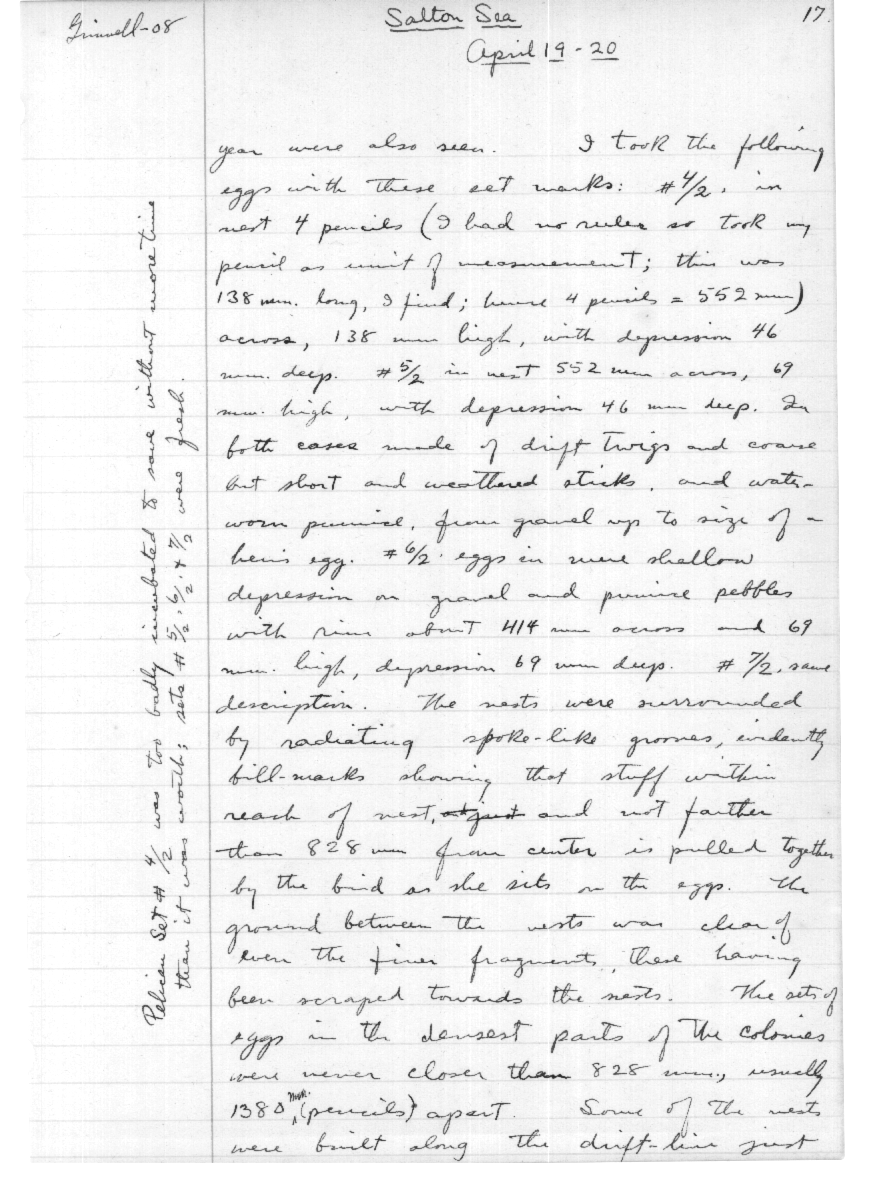 Grinnell-08
Salton Sea
17.
April 19 - 20
year were also seen. I took the following
eggs with these set marks: #4/2, in
nest 4 pencils (I had no ruler so took my
pencil as unit of measurement; this was
138 mm. long, I find; hence 4 pencils = 552 mm)
across, 138 mm high, with depression 46
mm. deep. #5/2 in nest 552 mm across, 69
mm. high, with depression 46 mm deep. In
both cases made of drift twigs and coarse
but short and weathered sticks, and water-
worn pumice, from gravel up to size of a
hen's egg. #6/2. eggs in mere shallow
depression on gravel and pumice pebbles
with rim about 414 mm across and 69
mm. high, depression 69 mm deep. # 7/2, same
description. The nests were surrounded
by radiating spoke-like grooves, evidently
bill-marks showing that stuff within
reach of nest, and not farther
than 828 mm from center is pulled together
by the bird as she sits on the eggs. The
ground between the nests was clear of
even the finer fragments, these having
been scraped towards the nests. The sets of
eggs in the densest parts of the colonies
were never closer than 828 mm., usually
1380 mm. (pencils) apart. Some of the nests
were built along the drift-line just
Pelican Set # 4/2 was too badly incubated to save without more time
than it was worth; sets # 5/2, 6/2 & 7/2 were fresh.